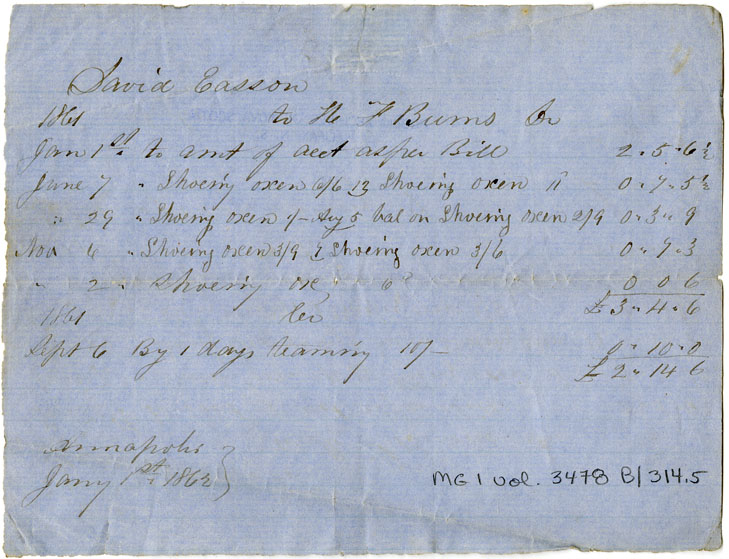 David Easson
1861 to H F Burns Dr
Jan 1st to amt of acct as per Bill 2 " 5 " 6 ½
June 7 " Shoeing oxen 6/6 13 Shoeing oxen 11 0 " 7 " 5 ½
" 29 " Shoeing oxen 1/- Aug 5 bal on Shoeing oxen 2/9 0 " 3 " 9
Nov 6 " Shoeing oxen 3/9 7 Shoeing oxen 3/6 0 " 7 " 3
" 2 " Shoeing ox " 6 0 0 6
£ 3 " 4 " 6
1861 Cr
Sept 6 By 1 days teaming 10/- 0 " 10 " 0
£ 2 " 14 6
Annapolis
Jany 1st 1862
MG 1 vol. 3478 B/314.5